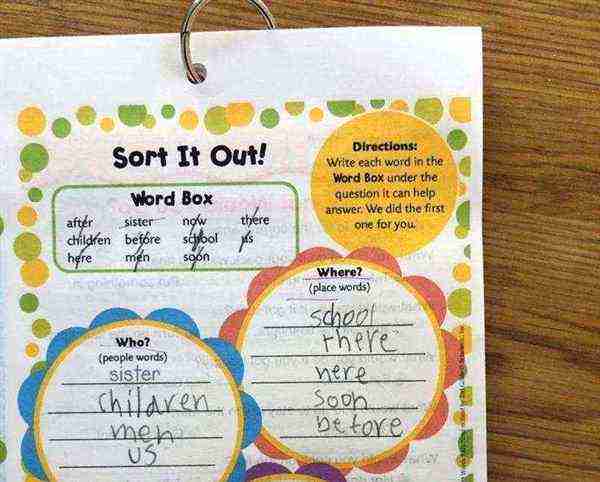 Sort It Out!
Word Box
after sister now there
children before school us
here men soon
Directions:
Write each word in the
Word Box under the
question it can help
answer. We did the first
one for you.
Where?
(place words)
school
there
here
soon
before
Who?
(people words)
sister
children
men
us